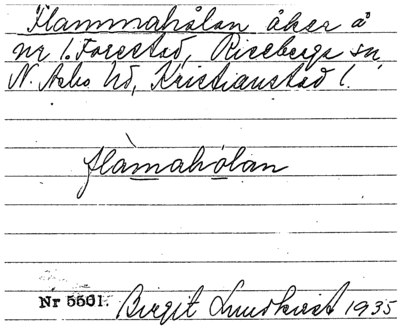 Flammahålan åker å
nr 1. Forestad, Riseberga sn,
N. Asbo hd, Kristianstad l.
flàmahòlan
Nr 5501. Birgit Lundkvist 1935